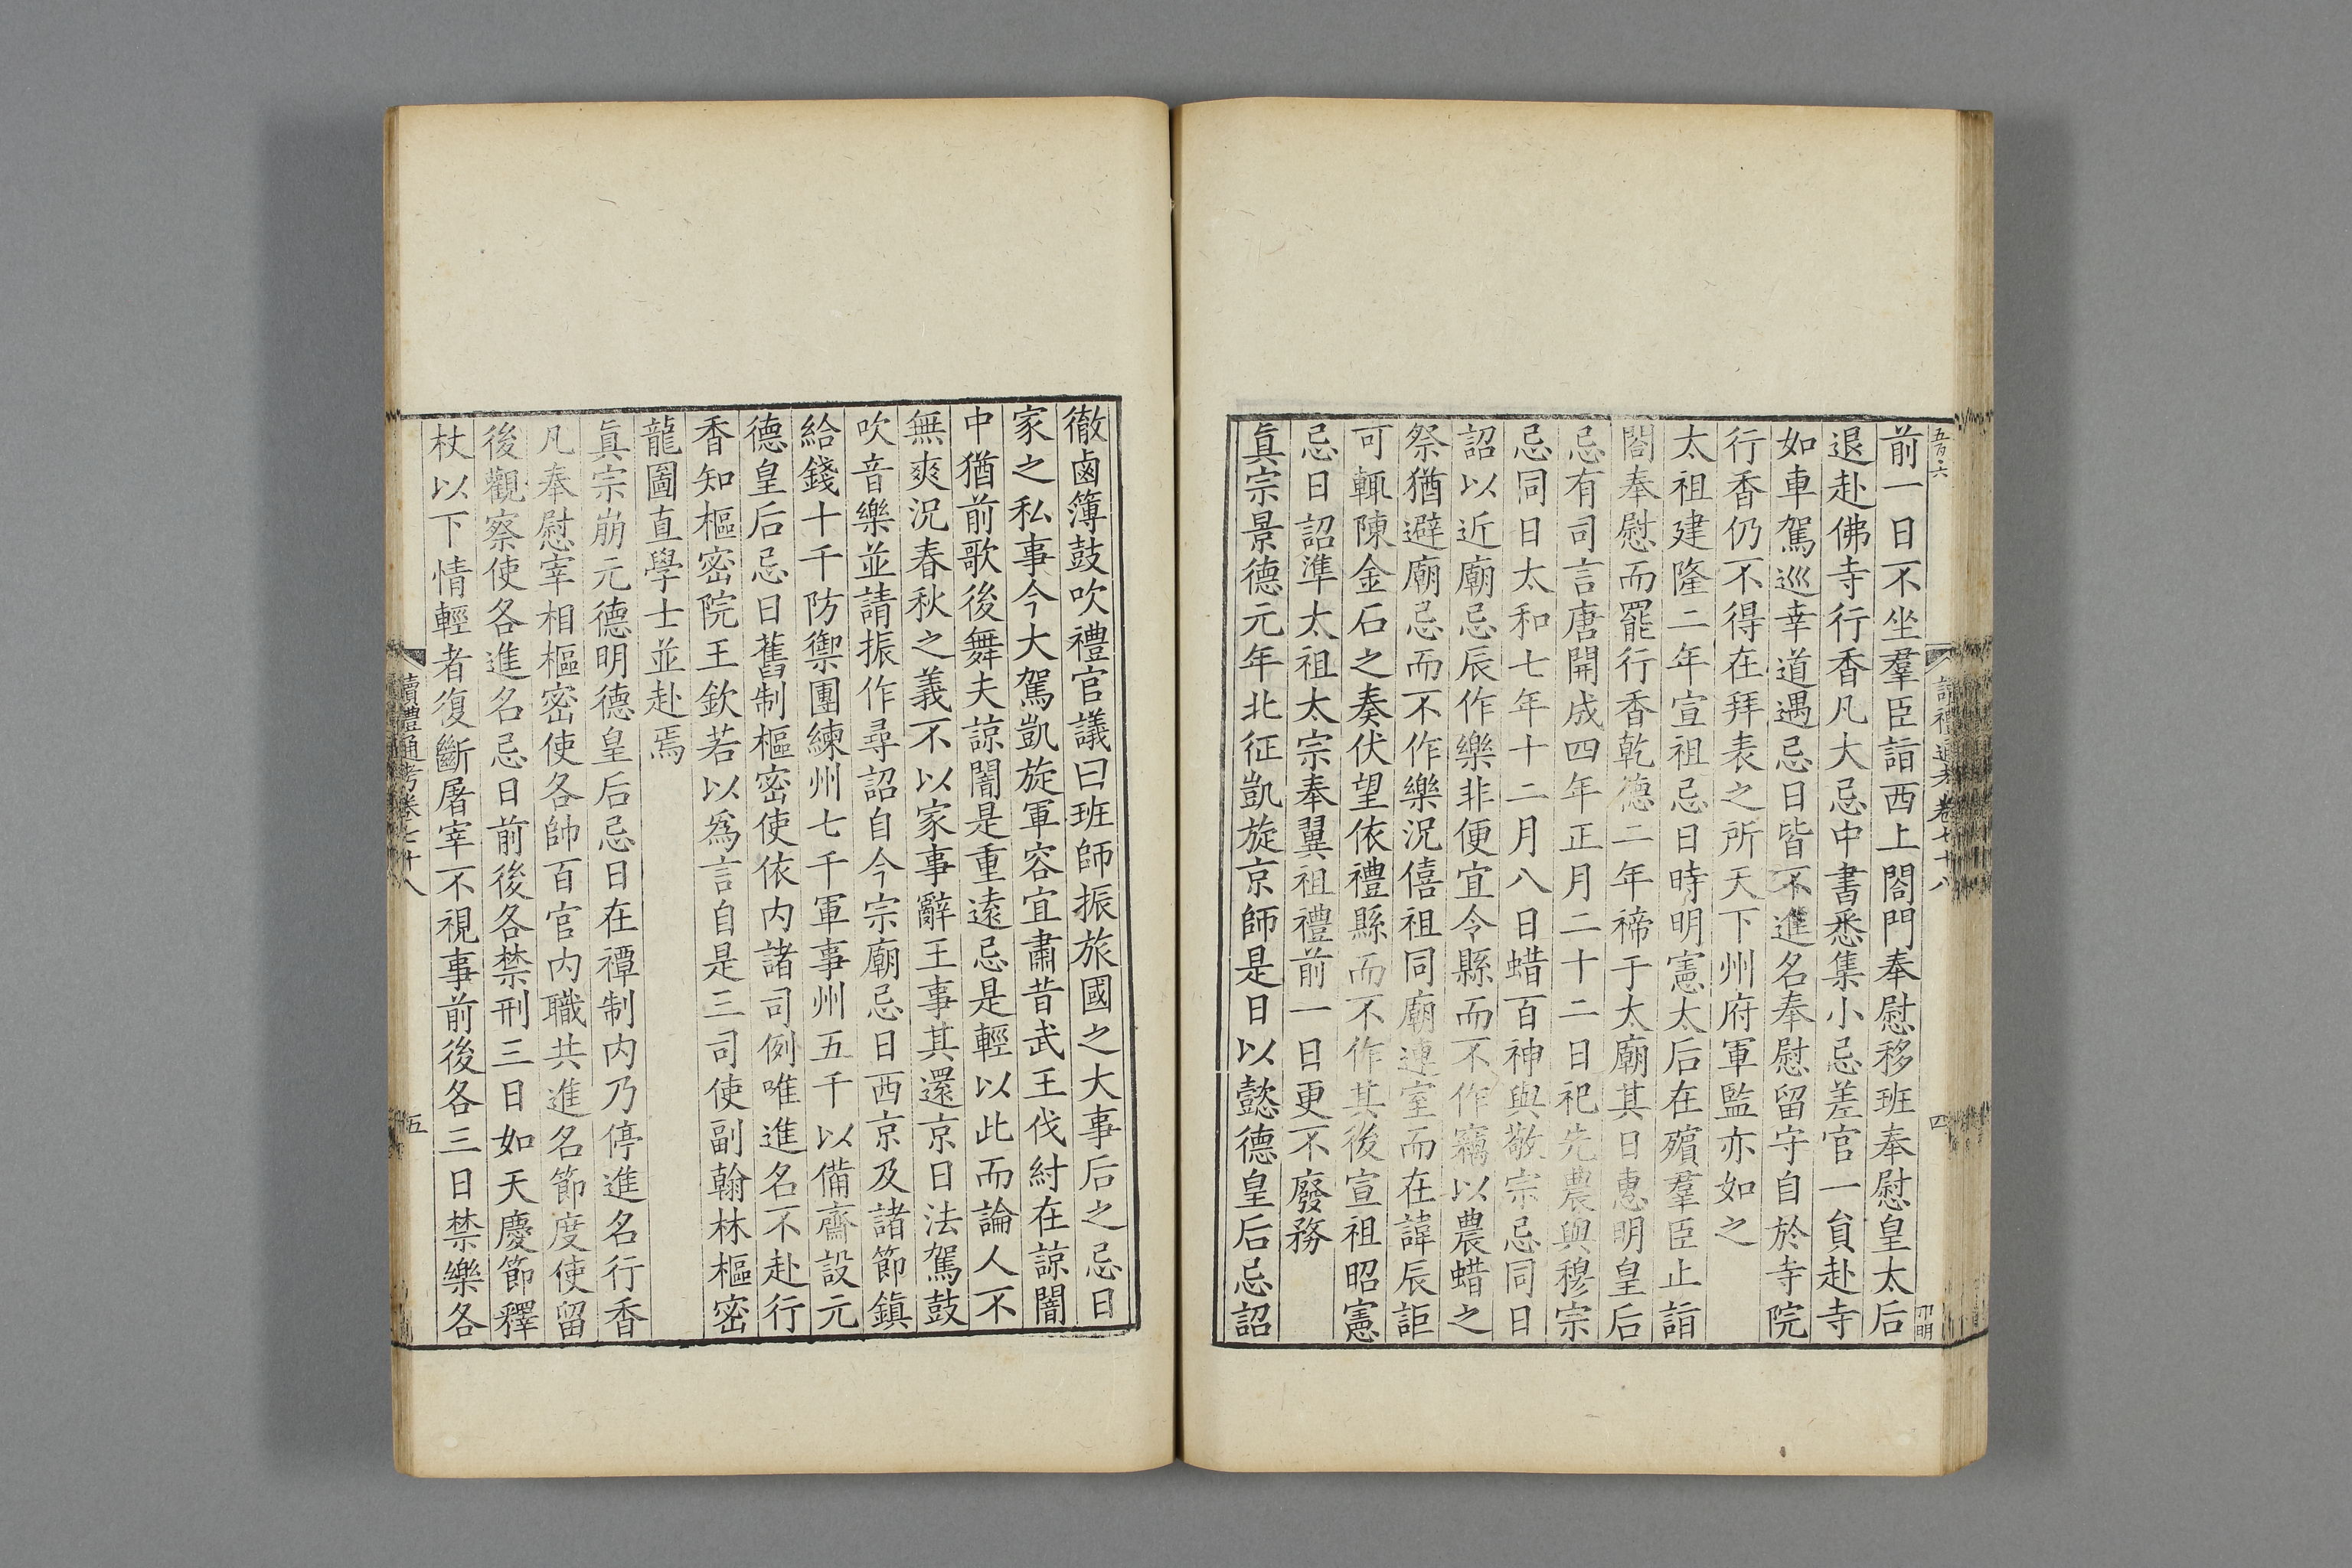 五百六
讀禮通考卷七十八
四
卭明
前一日不坐羣臣詣西上閤門奉慰移班奉慰皇太后
退赴佛寺行香凡大忌中書悉集小忌差官一貟赴寺
如車駕巡幸道遇忌日皆不進名奉慰留守自於寺院
行香仍不得在拜表之所天下州府軍監亦如之
太祖建隆二年宣祖忌日時明憲太后在殯羣臣止詣
閤奉慰而罷行香乾德二年禘于太廟其日惠明皇后
忌有司言唐開成四年正月二十二日祀先農與穆宗
忌同日太和七年十二月八日蜡百神與敬宗忌同日
詔以近廟忌辰作樂非便宜令縣而不作竊以農蜡之
祭猶避廟忌而不作樂況僖祖同廟連室而在諱辰詎
可輒陳金石之奏伏望依禮縣而不作其後宣祖昭憲
忌日詔準太祖太宗奉翼祖禮前一日更不廢務
眞宗景德元年北征凱旋京師是日以懿德皇后忌詔
徹鹵簿鼓吹禮官議曰班師振旅國之大事后之忌日
家之私事今大駕凱旋軍容宜肅昔武王伐紂在諒闇
中猶前歌後舞夫諒闇是重遠忌是輕以此而論人不
無爽況春秋之義不以家事辭王事其還京日法駕鼓
吹音樂並請振作尋詔自今宗廟忌日西京及諸節鎮
給錢十千防禦團練州七千軍事州五千以備齋設元
德皇后忌日舊制樞密使依内諸司例唯進名不赴行
香知樞密院王欽若以爲言自是三司使副翰林樞密
龍圖直學士並赴焉
眞宗崩元德明德皇后忌日在禫制内乃停進名行香
凡奉慰宰相樞密使各帥百官内職共進名節度使留
後觀察使各進名忌日前後各禁刑三日如天慶節釋
杖以下情輕者復斷屠宰不視事前後各三日禁樂各
讀禮通考卷七十八
五